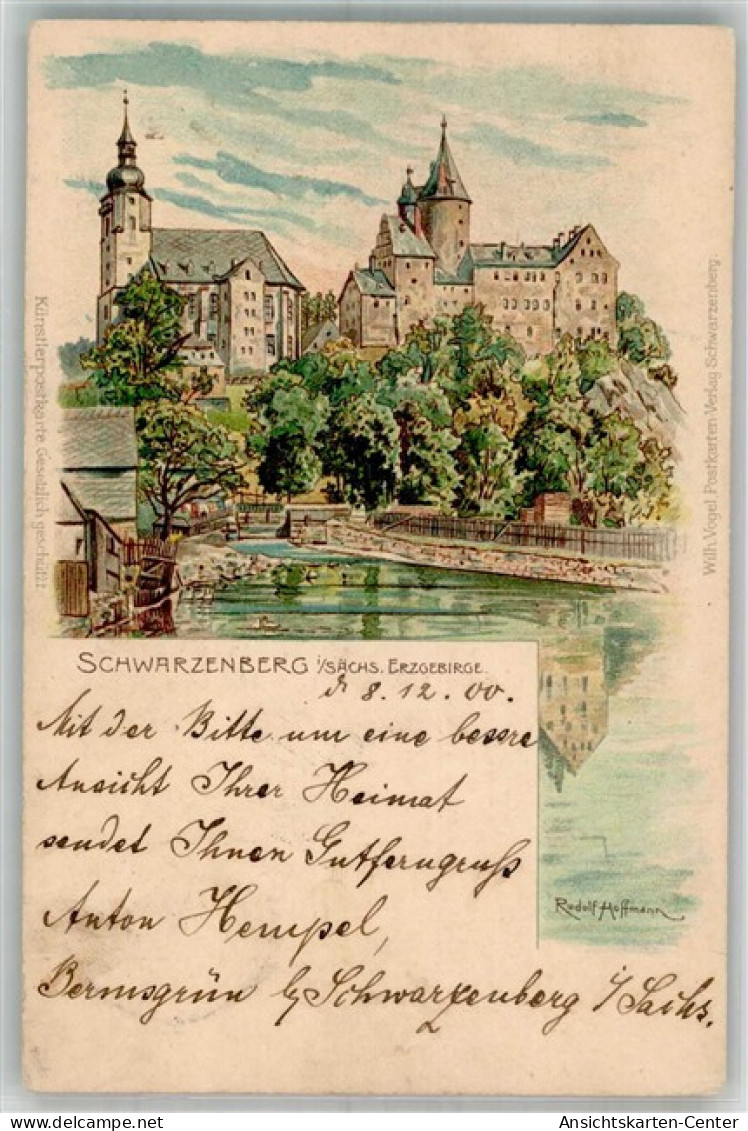 Künstlerpostkarte Gesetzlich geschützt
Wilh. Vogel Postkarten Verlag Schwarzenberg.
SCHWARZENBERG i/SÄCHS. ERZGEBIRGE.
d 8. 12. 00.
Mit der Bitte um eine bessre
Ansicht Ihrer Heimat
sendet Ihnen Gutferngruß
Anton Hempel,
Bermsgrün b/ Schwarzenberg i/ Sachs.
Rudolf Hoffmann
Ansichtskarten-Center